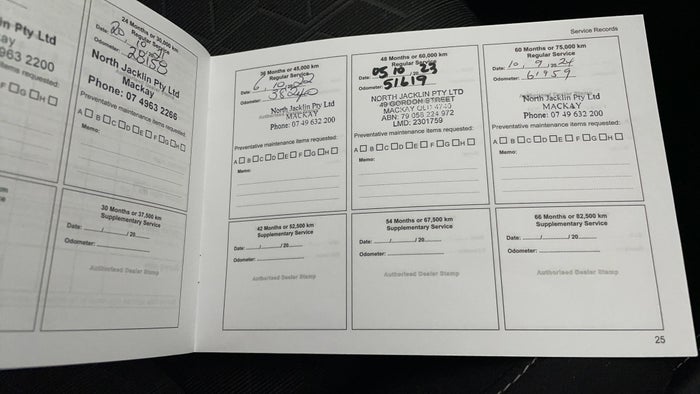 in Pty Ltd
ay
963 2200
tems requested:
F G H
24 Months or 30,000 km
Regular Service
Date: 20 10
Odometer: 28158
North Jacklin Pty Ltd
Mackay
Phone: 07 4963 2266
Preventative maintenance items requested:
A B C D E F G H
Memo:
30 Months or 37,500 km
Supplementary Service
Date: / /20
Odometer:
Authorised Dealer Stamp
Service Records
36 Months or 45,000 km
Regular Service
Date: 6, 10, 22
Odometer: 38240
North Jacklin Pty Ltd
MACKAY
Phone: 07 49 632 200
Preventative maintenance items requested:
A B C D E F G H
Memo:
48 Months or 60,000 km
Regular Service
Date: 05 10 23
Odometer: 51619
NORTH JACKLIN PTY LTD
49 GORDON STREET
MACKAY QLD 4740
ABN: 79 058 224 972
LMD: 2301759
Preventative maintenance items requested:
A B C D E F G H
Memo:
60 Months or 75,000 km
Regular Service
Date: 10, 9, 2024
Odometer: 61959
North Jacklin Pty Ltd
MACKAY
Phone: 07 49 632 200
Preventative maintenance items requested:
A B C D E F G H
Memo:
42 Months or 52,500 km
Supplementary Service
Date: / /20
Odometer:
Authorised Dealer Stamp
54 Months or 67,500 km
Supplementary Service
Date: / /20
Odometer:
Authorised Dealer Stamp
66 Months or 82,500 km
Supplementary Service
Date: / /20
Odometer:
Authorised Dealer Stamp
25